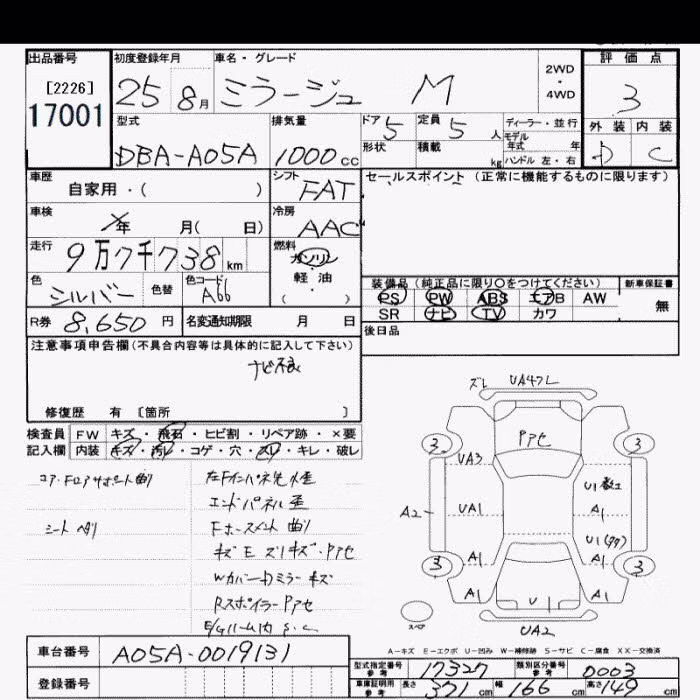 出品番号 初度登録年月 車名・グレード 2WD・4WD 評価点
[2226]
17001
25 8月 ミラージュ M 3
型式 排気量 ドア 5 定員 5人 ディーラー・並行 外装 内装
モデル年式 年
DBA-A05A 1000cc 形状 積載 kg ハンドル 左・右 D C
車歴 自家用・( ) シフト FAT セールスポイント (正常に機能するものに限ります)
車検 年 月( 日) 冷房 AAC
走行 9万7千738km 燃料 ガソリン
軽・油
( )
色 シルバー 色替 色コード A66
装備品 (純正品に限り○をつけてください) 新車保証書
PS PW ABS エアB AW 無
SR ナビ TV カワ
R券 8,650円 名変通知期限 月 日
後日品
注意事項申告欄(不具合内容等は具体的に記入して下さい)
ナビ不良
修復歴 有 [箇所 ]
検査員 FW キズ・飛石・ヒビ割・リペア跡・×要
記入欄 内装 キズ・汚レ・コゲ・穴・スレ・キレ・破レ
コア・Fロアサポート曲り
シート ヘタリ
エンドパネル歪
Fホースメント 曲り
Rスポイラー Pアセ
ズレ UA47L
Pアセ
3 3
UA3
A2 UA1 A1
A1 A1
3 3
A1 A1
U1
UA2
スペア
A-キズ E-エクボ U-凹み W-補修跡 S-サビ C-腐食 XX-交換済
車台番号 A05A-0019131
登録番号
型式指定番号 参考 17327 類別区分番号 参考 0003
車庫証明用 参考 長さ 371cm 幅 166cm 高さ 149cm